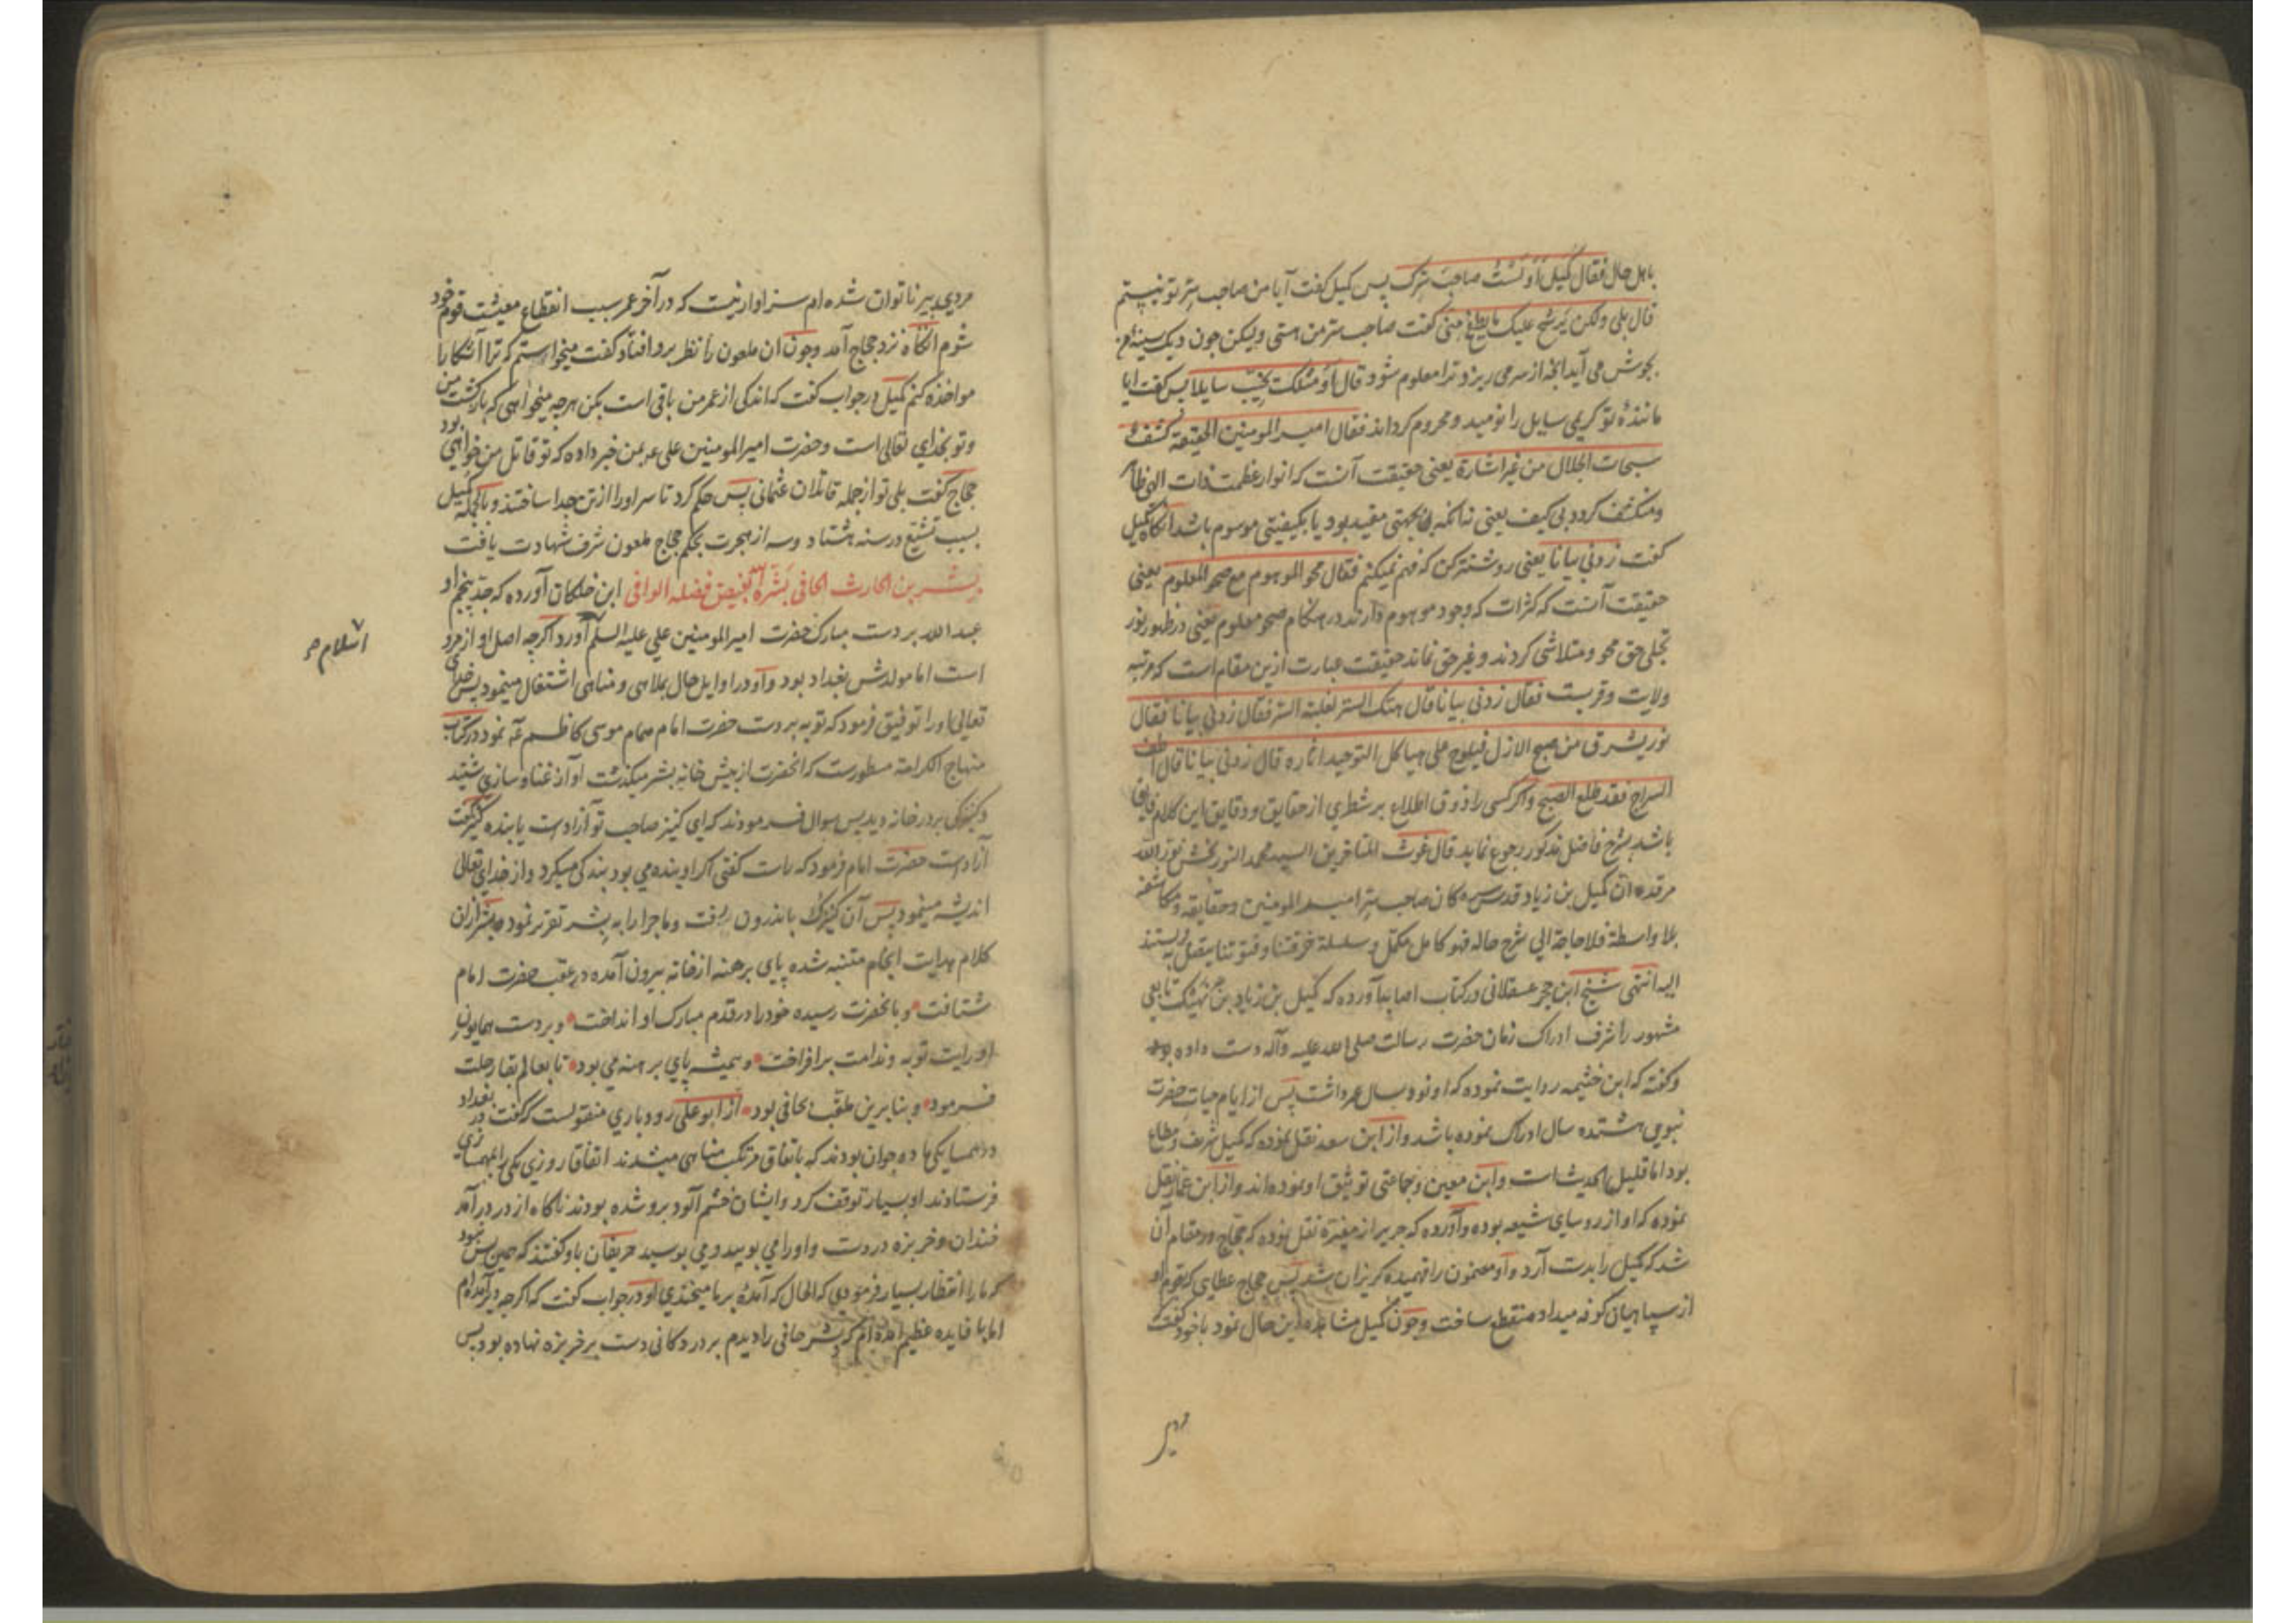 باهل حال فقال کمیل اَوَلَسْتُ صاحبَ سِرّک پس کمیل کفت آیا من صاحب سِرّ تو نیستم
قال بلی ولکن یَرشح علیک ما یطفح منّی کفت صاحب سرّ من هستی ولیکن چون دیک سینهٔ من
بجوش می آید آنچه از سر می ریزد ترا معلوم شود قال اَوَ مثلک یخیّب سایلا پس کفت ایا
مانندهٔ تو کریمی سایل را نومید و محروم کرداند فقال امیر المومنین الحقیقة کشف
سبحات الجلال من غیر اشارة یعنی حقیقت آنست که انوار عظمت ذات الهی ظاهر
ومنکشف کردد بی کیف یعنی نه آنکه بجهتی مقید بود یا بکیفیتی موسوم باشد آنکاه کمیل
کفت زدنی بیانا یعنی روشنتر کن که فهم نمیکنم فقال محو الموهوم مع صحو المعلوم یعنی
حقیقت آنست که کثرات که وجود موهوم دارند در هنکام صحو معلوم یعنی در ظهور نور
تجلی حق محو و متلاشی کردند و غیر حق نماند حقیقت عبارت ازین مقام است که مرتبه
ولایت و قربست فقال زدنی بیانا قال هتک الستر لغلبة السر فقال زدنی بیانا فقال
نور یشرق من صبح الازل فیلوح علی هیاکل التوحید اثاره قال زدنی بیانا قال اطف
السراج فقد طلع الصبح و اکر کسی را ذوق اطلاع بر شطری از حقایق و دقایق این کلام
باشد بشرح فاضل مذکور رجوع نماید قال غوث المتاخرین السید محمد النوربخش نور الله
مرقده ان کمیل بن زیاد قدس سره کان صاحب سِرّ امیر المومنین و حقایقه و مکاشفه
بلا واسطة فلا حاجة الی شرح حاله فهو کامل مکمّل و سلسلة خرقتنا و فتوتنا یتصل و یستند
الیه انتهی شیخ ابن حجر عسقلانی در کتاب اصابه آورده که کمیل بن زیاد بن نهیک تابعی
مشهور را شرف ادراک زمان حضرت رسالت صلی الله علیه وآله دست داده بود
وکفته که ابن خثیمه روایت نموده که او نود سال عمر داشت پس از ایام حیات حضرت
نبوی هشتده سال ادراک نموده باشد و از ابن سعد نقل نموده که کمیل شریف و مطاع
بود اما قلیل الحدیث است و ابن معین و جماعتی توثیق او نموده اند و از ابن عمار نقل
نموده که او از روسای شیعه بوده و آورده که جریر از مغیرة نقل نموده که حجّاج در مقام آن
شد که کمیل را بدست آرد و او مضمون را فهمیده کریزان شد پس حجاج عطایی که بقوم او
از سپاهیان کوفه میداد منقطع ساخت و چون کمیل مشاهده این حال نمود با خود کفت
مردی پیر
مردی پیر ناتوان شده ام سزاوار نیست که در آخر عمر سبب انقطاع معیشت قوم خود
شوم آنکاه نزد حجاج آمد و چون ان ملعون را نظر برو افتاد کفت میخواستم که ترا آشکارا
مواخذه کنم کمیل در جواب کفت که اندکی از عمر من باقی است بکن هرچه میخواهی که بازکشت من
و تو بخدای تعالی است و حضرت امیر المومنین علی ع م بمن خبر داده که تو قاتل من خواهی بود
حجاج کفت بلی تو از جمله قاتلان عثمانی پس حکم کرد تا سر او را از تن جدا ساختند و بالجمله کمیل
بسبب تشیّع در سنه هشتاد و سه از هجرت بحکم حجاج ملعون شرف شهادت یافت
بشر بن الحارث الحافی بَشّرَهُ الله بفیض فضله الوافی ابن خلکان آورده که جدّ پنجم او
عبد الله بر دست مبارک حضرت امیر المومنین علی علیه السلم آورد اکرچه اصل او از مرو
اسلام صح
است اما مولدش بغداد بود و او در اوایل حال بملاهی و مناهی اشتغال مینمود پس خدای
تعالی او را توفیق فرمود که توبه بر دست حضرت امام همام موسی کاظم ع م نمود در کتاب
منهاج الکرامة مسطورست که آنحضرت از پیش خانهٔ بشر میکذشت آواز غنا و سازی شنید
و کنیزکی بر در خانه دید پس سوال فرمودند که ای کنیز صاحب تو آزادست یا بنده کنیز کفت
آزادست حضرت امام فرمود که راست کفتی اکر او بنده می بود بندکی میکرد و از خدای تعالی
اندیشه مینمود پس آن کنیزک باندرون رفت و ماجرا را به بشر تقریر نمود بشر از ان
کلام هدایت انجام متنبه شده پای برهنه از خانه بیرون آمده در عقب حضرت امام
شتافت و بآنحضرت رسیده خود را در قدم مبارک او انداخت و بر دست همایون
او رایت توبه و ندامت برافراخت و همیشه پای برهنه می بود تا بعالم بقا رحلت
فرمود و بنابرین ملقّب بحافی بود از ابو علی رودباری منقولست که کفت در بغداد
در همسایکی ما ده جوان بودند که باتفاق مرتکب مناهی میشدند اتفاقا روزی یکی را بمهمسازی
فرستادند او بسیار توقف کرد و ایشان خشم آلود برو شده بودند ناکاه از در درآمد
خندان و خربزه در دست و او را می بویید و می بوسید حریفان باو کفتند که همین بس نبود
که ما را انتظار بسیار فرمودی که الحال که آمدهٔ بر ما میخندی او در جواب کفت که اکرچه دیر آمدم
اما با فایده عظیم آمده ام که بشر حافی را دیدم بر در دکانی دست بر خربزه نهاده بود پس